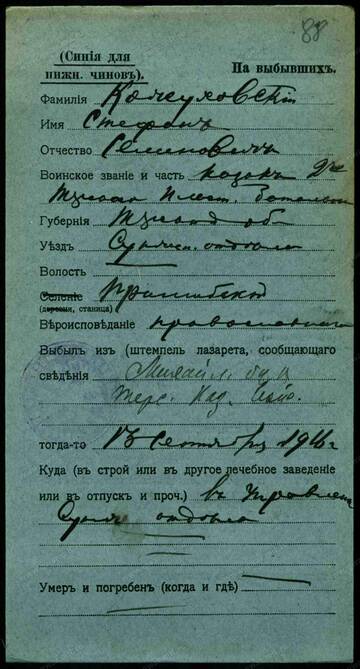 88
(Синія для
нижн. чиновъ).
На выбывшихъ.
Фамилія Кожуховскій
Имя Стефанъ
Отчество Семеновичъ
Воинское званіе и часть казакъ 2й
Пласт. баталіонъ
Губернія Терская об
Уѣздъ Сунжен. отдѣла
Волость
Селеніе
(деревня, станица)
Вѣроисповѣданіе православный
Выбылъ изъ (штемпель лазарета, сообщающаго
свѣдѣнія Михайл.
Терс. Каз.
тогда-то 13 Сентября 1916
Куда (въ строй или въ другое лечебное заведеніе
или въ отпускъ и проч.) въ Управлен
Сунж отдѣла
Умеръ и погребенъ (когда и гдѣ)